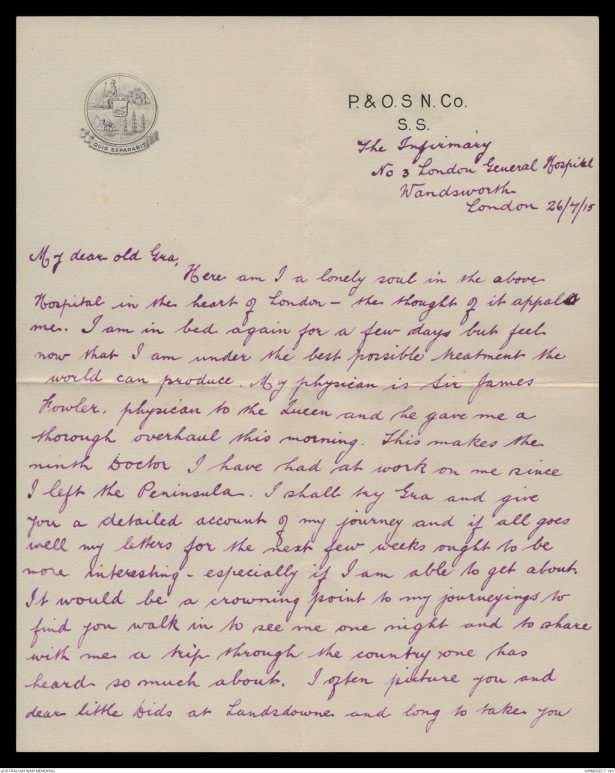 QUIS SEPARABIT
P. & O. S. N. Co.
S. S.
The Infirmary
No 3 London General Hospital
Wandsworth
London 26/7/15
My dear old Gra,
Here am I a lonely soul in the above
Hospital in the heart of London – the thought of it appals
me. I am in bed again for a few days but feel
now that I am under the best possible treatment the
world can produce. My physican is Sir James
Fowler, physican to the Queen and he gave me a
thorough overhaul this morning. This makes the
ninth Doctor I have had at work on me since
I left the Peninsula. I shall try Gra and give
you a detailed account of my journey and if all goes
well my letters for the next few weeks ought to be
more interesting – especially if I am able to get about.
It would be a crowning point to my journeyings to
find you walk in to see me one night and to share
with me a trip through the country one has
heard so much about. I often picture you and
dear little Dids at Landsdowne and long to take you
AUSTRALIAN WAR MEMORIAL